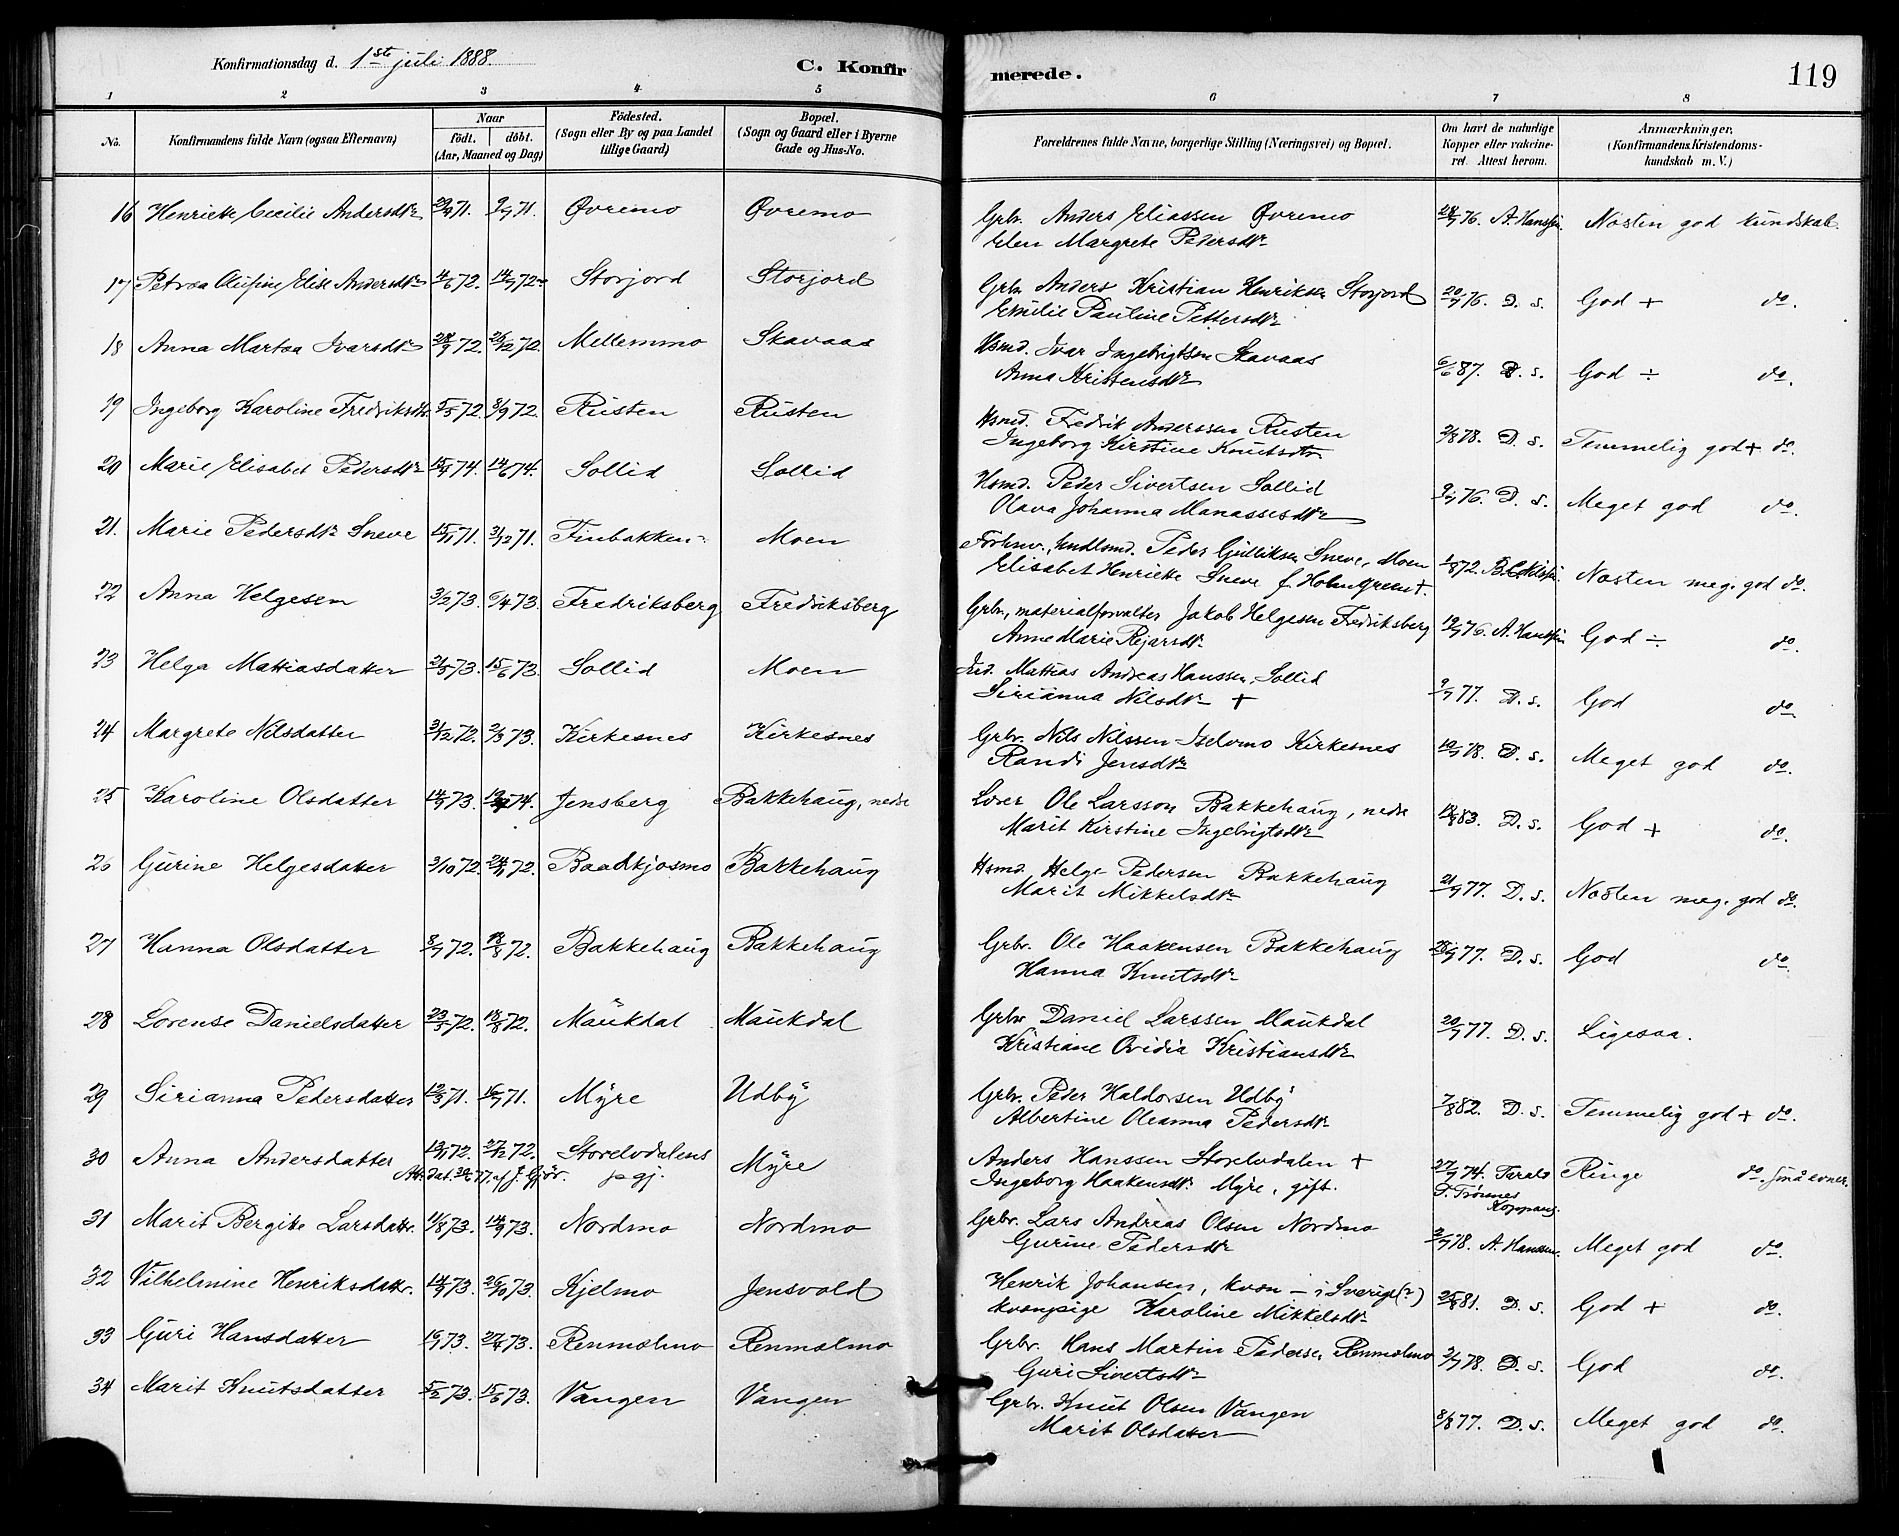 Konfirmationsdag d. 1ste juli 1888. C. Konfirmerede. 119
1 2 3 4 5 6 7 8
No. Konfirmandens fulde Navn (ogsaa Efternavn) Naar födt. döbt. (Aar, Maaned og Dag) Födested. (Sogn eller By og paa Landet tillige Gaard) Bopæl. (Sogn og Gaard eller i Byerne Gade og Hus-No. Forældrenes fulde Navne, borgerlige Stilling (Næringsvei) og Bopæl. Om havt de naturlige Kopper eller vakcineret. Attest herom. Anmærkninger, (Konfirmandens Kristendomskundskab m. V.)
16 Henriette Cecilie Andersdtr 71. 9/7 71. Øvremo Øvremo Grbr. Anders Eliassen Øvremo 76. A. Hanssen. Næsten god kundskab.
Elen Margrete Pedersdtr
17 Petræa Olufine Elise Andersdtr 4/6 72. 14/7 72. Storjord Storjord Grbr Anders Kristian Henriksen Storjord 20/7 76. D. s. God + do.
Emilie Pauline Pettersdtr
18 Anna Martaa Ivarsdtr 28/9 72. 26/12 72. Mellemmo Skavaas Hsmd. Ivar Ingebrigtsen Skavaas 6/6 87. D. s. God ÷ do.
Anna Kristensdtr
19 Ingeborg Karoline Fredriksdtr. 5/5 72. 8/9 72. Rusten Rusten Hsmd. Fredrik Anderssen Rusten 2/8 78. D. s. Temmelig god + do.
Ingeborg Kirstine Knutsdtr.
20 Marie Elisabet Pedersdtr 15/4 74. 14/6 74. Sollid Sollid Hsmd. Peder Sivertsen Sollid 9/7 76. D. s. Meget god do.
Olava Johanna Manassesdtr
21. Marie Pedersdtr Sneve 15/11 71. 31/12 71. Finbakken Moen Forhnv. Lndlsmd. Peder Gulliksen Sneve, Moen 1/8 72. Næsten meg. god do.
Elisabet Henriette Sneve f. Holmgreen +.
22 Anna Helgesen 3/2 73. 6/4 73. Fredriksberg Fredriksberg Grbr., materialforvalter Jakob Helgesen Fredriksberg 19/7 76. A. Hanssen God ÷ do.
Anne Marie Rejarsdtr
23 Helga Mattiasdatter 2/5 73. 15/6 73. Sollid Moen Ind. Mattias Andreas Hanssen, Sollid 9/7 77. D. s. God do.
Sirianna Nilsdtr +
24 Margrete Nilsdatter 3/12 72. 2/3 73. Kirkesnes Kirkesnes Grbr. Nils Nilssen Iselvmo Kirkesnes 19/7 78. D. s. Meget god do.
Randi Jensdtr
25 Karoline Olsdatter 14/9 73. 74. Jensberg Bakkehaug, nedre Loser Ole Larsson Bakkehaug, nedre 19/8 83. D. s. God + do.
Marit Kirstine Ingebrigtsdtr
26 Gurine Helgesdatter 3/10 72. 24/11 72. Baadkjosmo Bakkehaug Hsmd. Helge Pedersen Bakkehaug 21/9 77. D. s. Næsten meg. god do.
Marit Mikkelsdtr
27 Hanna Olsdatter 8/7 72. 18/8 72. Bakkehaug Bakkehaug Grbr. Ole Haakensen Bakkehaug 77. D. s. God do.
Hanna Knutsdtr
28 Lorense Danielsdatter 23/5 72. 18/8 72. Maukdal Maukdal Grbr Daniel Larssen Maukdal 20/7 77. D. s. Ligesaa.
Kristiane Ovidia Kristiansdtr
29 Sirianna Pedersdatter 12/5 71. 16/7 71. Myre Udby Grbr. Peder Haldorsen Udby 7/8 82. D. s. Temmelig god + do.
Albertine Oleanna Pedersdtr
30 Anna Andersdatter 13/11 72. 27/12 72. Storelvdalens Myre Anders Hanssen Storelvdalen + 27/9 74. Tarald Ringe do. Små evner.
Att. dat. 77. af J. Gjør. pgj. Ingeborg Haakensdtr. Myre, gift. P. Trønnes
Koppang.
31 Marit Bergitte Larsdatter. 11/8 73. 14/9 73. Nordmo Nordmo Grbr. Lars Andreas Olsen Nordmo 2/7 78. A. Hanssen. Meget god do.
Gurine Pedersdtr
32 Vilhelmine Henriksdatter. 14/9 73. 26/10 73. Kjelmo Jensvold Henrik Johansen, kvæn – i Sverige (?) 25/8 81. D. s. God + do.
kvænpige Karoline Mikkelsdtr
33 Guri Hansdatter 73. 27/4 73. Renmælmo Renmælmo Grbr. Hans Martin Pedersen Renmælmo 2/7 78. D. s. God do.
Guri Sivertsdtr
34 Marit Knutsdatter 5/2 73. 15/6 73. Vangen Vangen Grbr. Knut Olsen Vangen 8/8 77. D. s. Meget god do.
Marit Olsdatter